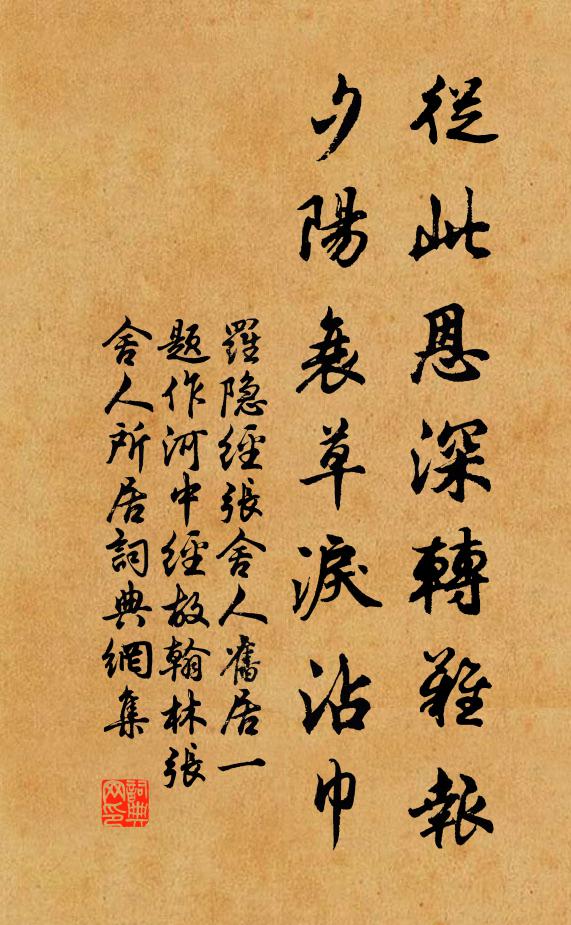 從此恩深轉難報
夕陽衰草淚沾巾
羅隐經張舍人舊居一
题作河中經故翰林張
舍人所居詞典網集
詞典网印